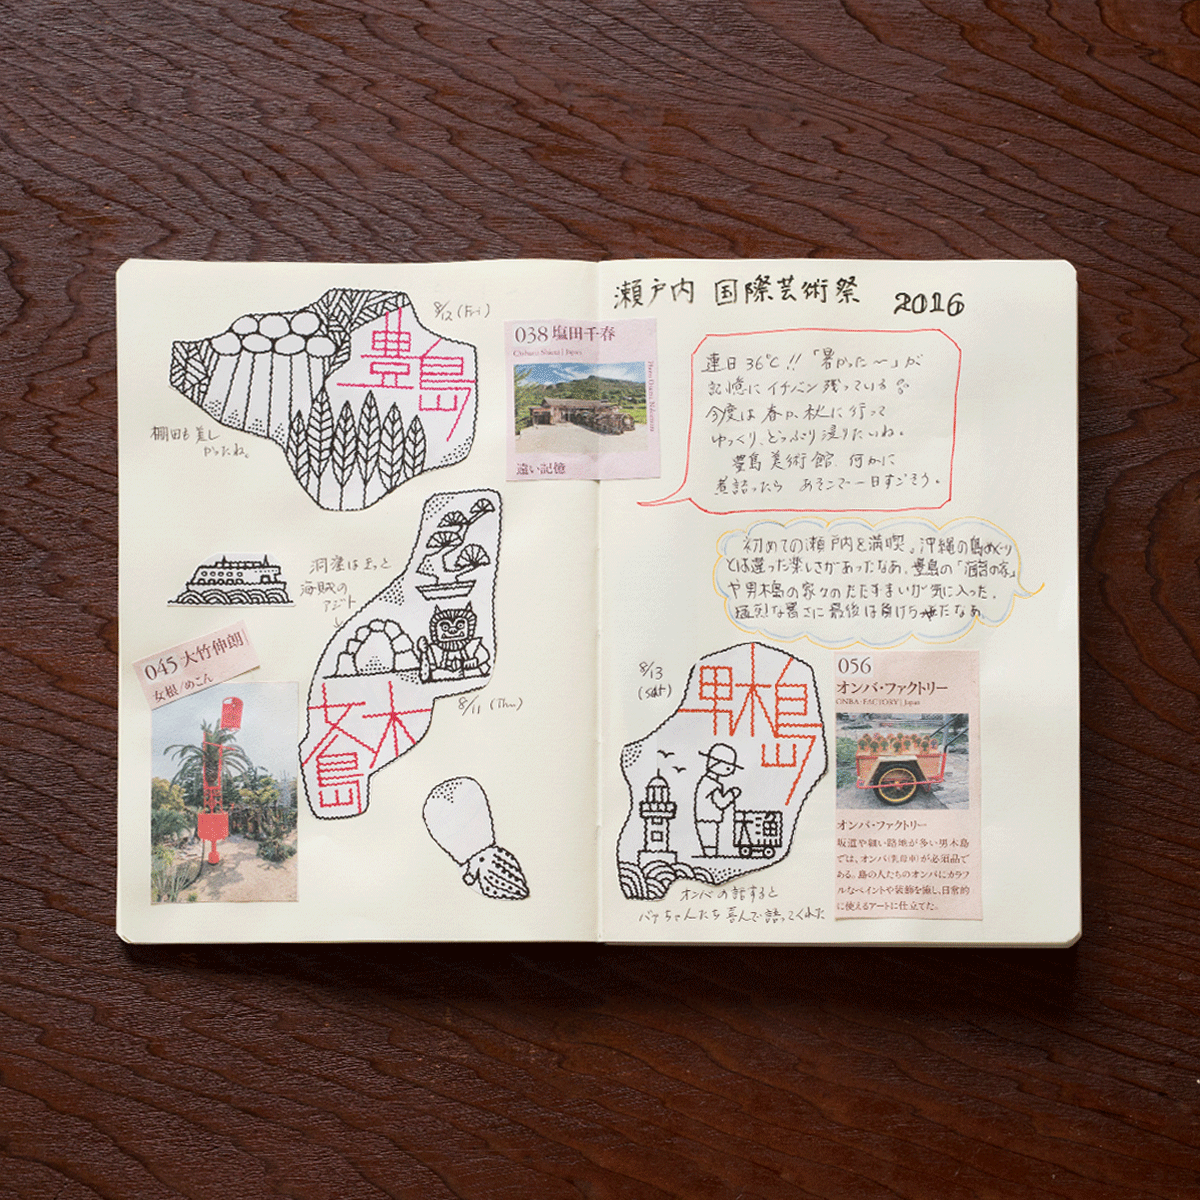 8/12 (Fri)
豊島
棚田も美し
かったね。
洞窟はきっと
海賊の
アジト
045 大竹伸朗
女根/めこん
8/11 (Thu)
女木
島
038 塩田千春
Chiharu Shiota | Japan
遠い記憶
瀬戸内 国際芸術祭 2016
連日36℃!!「暑かった〜」が
記憶にイチバン残っている
今度は春か秋に行って
ゆっくり、どっぷり浸りたいね。
豊島美術館、何かに
煮詰ったら あそこで一日すごそう。
初めての瀬戸内を満喫。沖縄の島めぐり
とは違った楽しさがあったなあ。豊島の「の家」
や男木島の家々のたたずまいが気に入った。
猛烈な暑さに最後は負けちゃたなあ。
8/13
(Sat)
男木島
大漁
オンバの話すると
バァちゃんたち喜んで語ってくれた
056
オンバ・ファクトリー
ONBA・FACTORY | Japan
オンバ・ファクトリー
坂道や細い路地が多い男木島
では、オンバ(乳母車)が必須品で
ある。島の人たちのオンバにカラフ
ルなペイントや装飾を施し、日常的
に使えるアートに仕立てた。